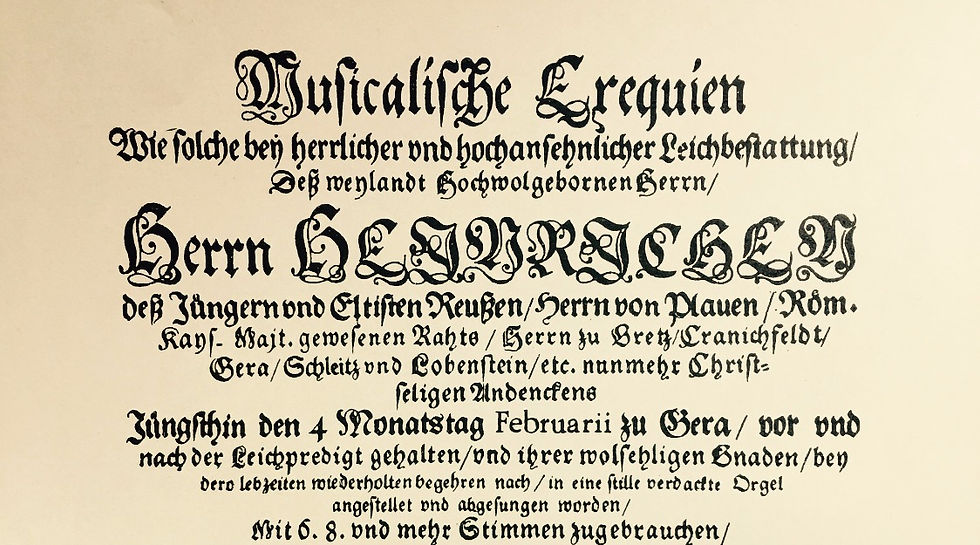 Musicalische Exequien
Wie solche bey herrlicher vnd hochansehnlicher Leichbestattung/
Deß weylandt Hochwolgebornen Herrn/
Herrn HEINRICHEN
deß Jüngern vnd Eltisten Reußen/Herrn von Plauen/Röm.
Kays. Majt. gewesenen Rahts / Herrn zu Gretz/Cranichfeldt/
Gera/Schleitz vnd Lobenstein/etc. nunmehr Christ=
seligen Andenckens
Jüngsthin den 4 Monatstag Februarii zu Gera/ vor vnd
nach der Leichpredigt gehalten/vnd ihrer wolsehligen Gnaden/bey
dero lebzeiten wiederholten begehren nach/in eine stille verdackte Orgel
angestellet vnd abgesungen worden/
Mit 6. 8. vnd mehr Stimmen zugebrauchen/